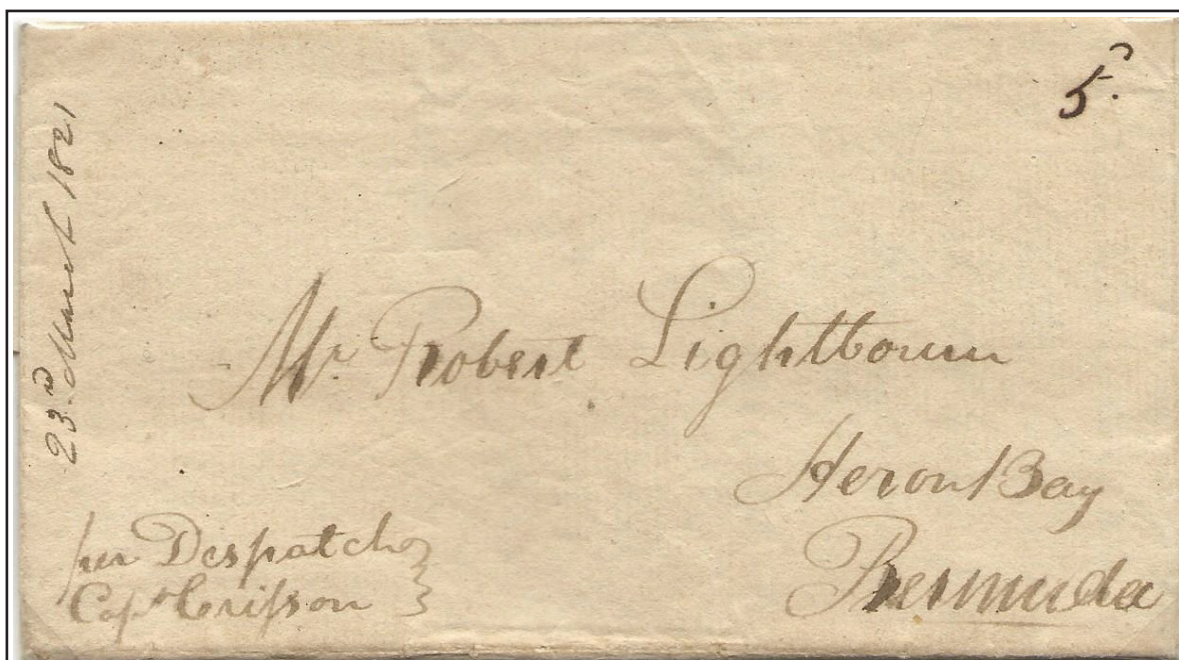 5.ᵈ
23.ʳᵈ March 1821
Mr. Robert Lightbourn
Heron Bay
Bermuda
per Despatch
Capᵗ Criſson